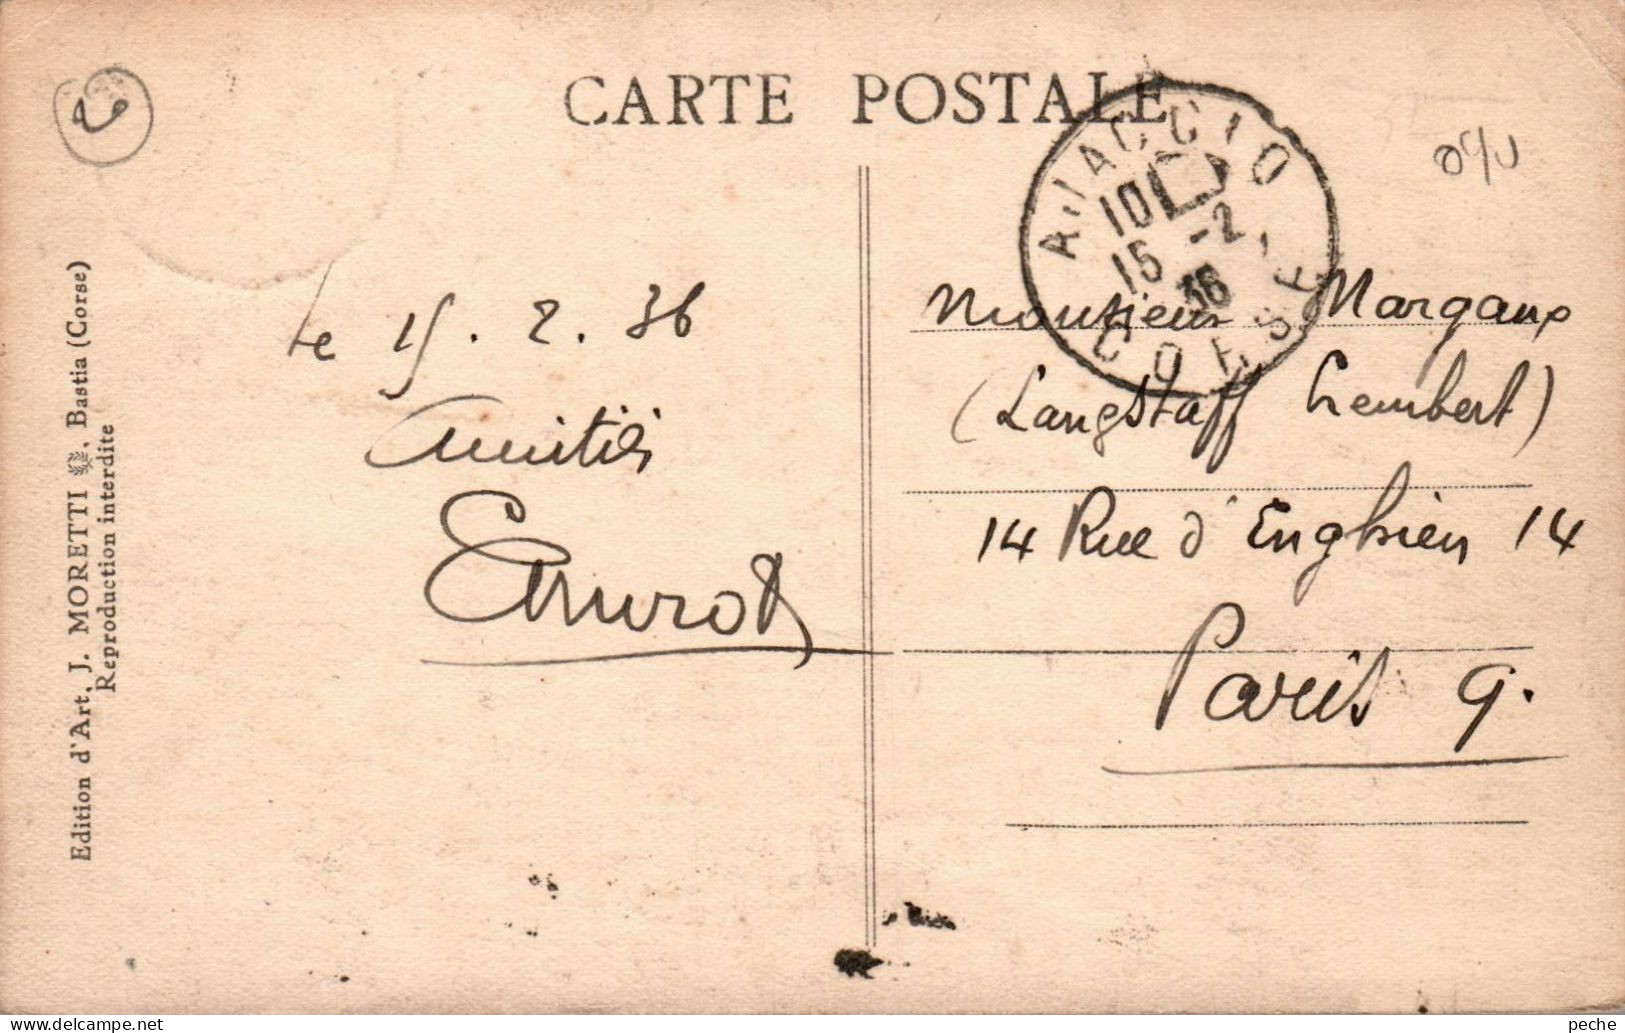 CARTE POSTALE
AJACCIO
10
15 -2
36
CORSE
le 15. 2. 36
Amitiés
Edition d'Art, J. MORETTI, Bastia (Corse)
Reproduction interdite
Monsieur Margaux
(Langstaff Crembert)
14 Rue d'Enghien 14
Paris 9.
peche